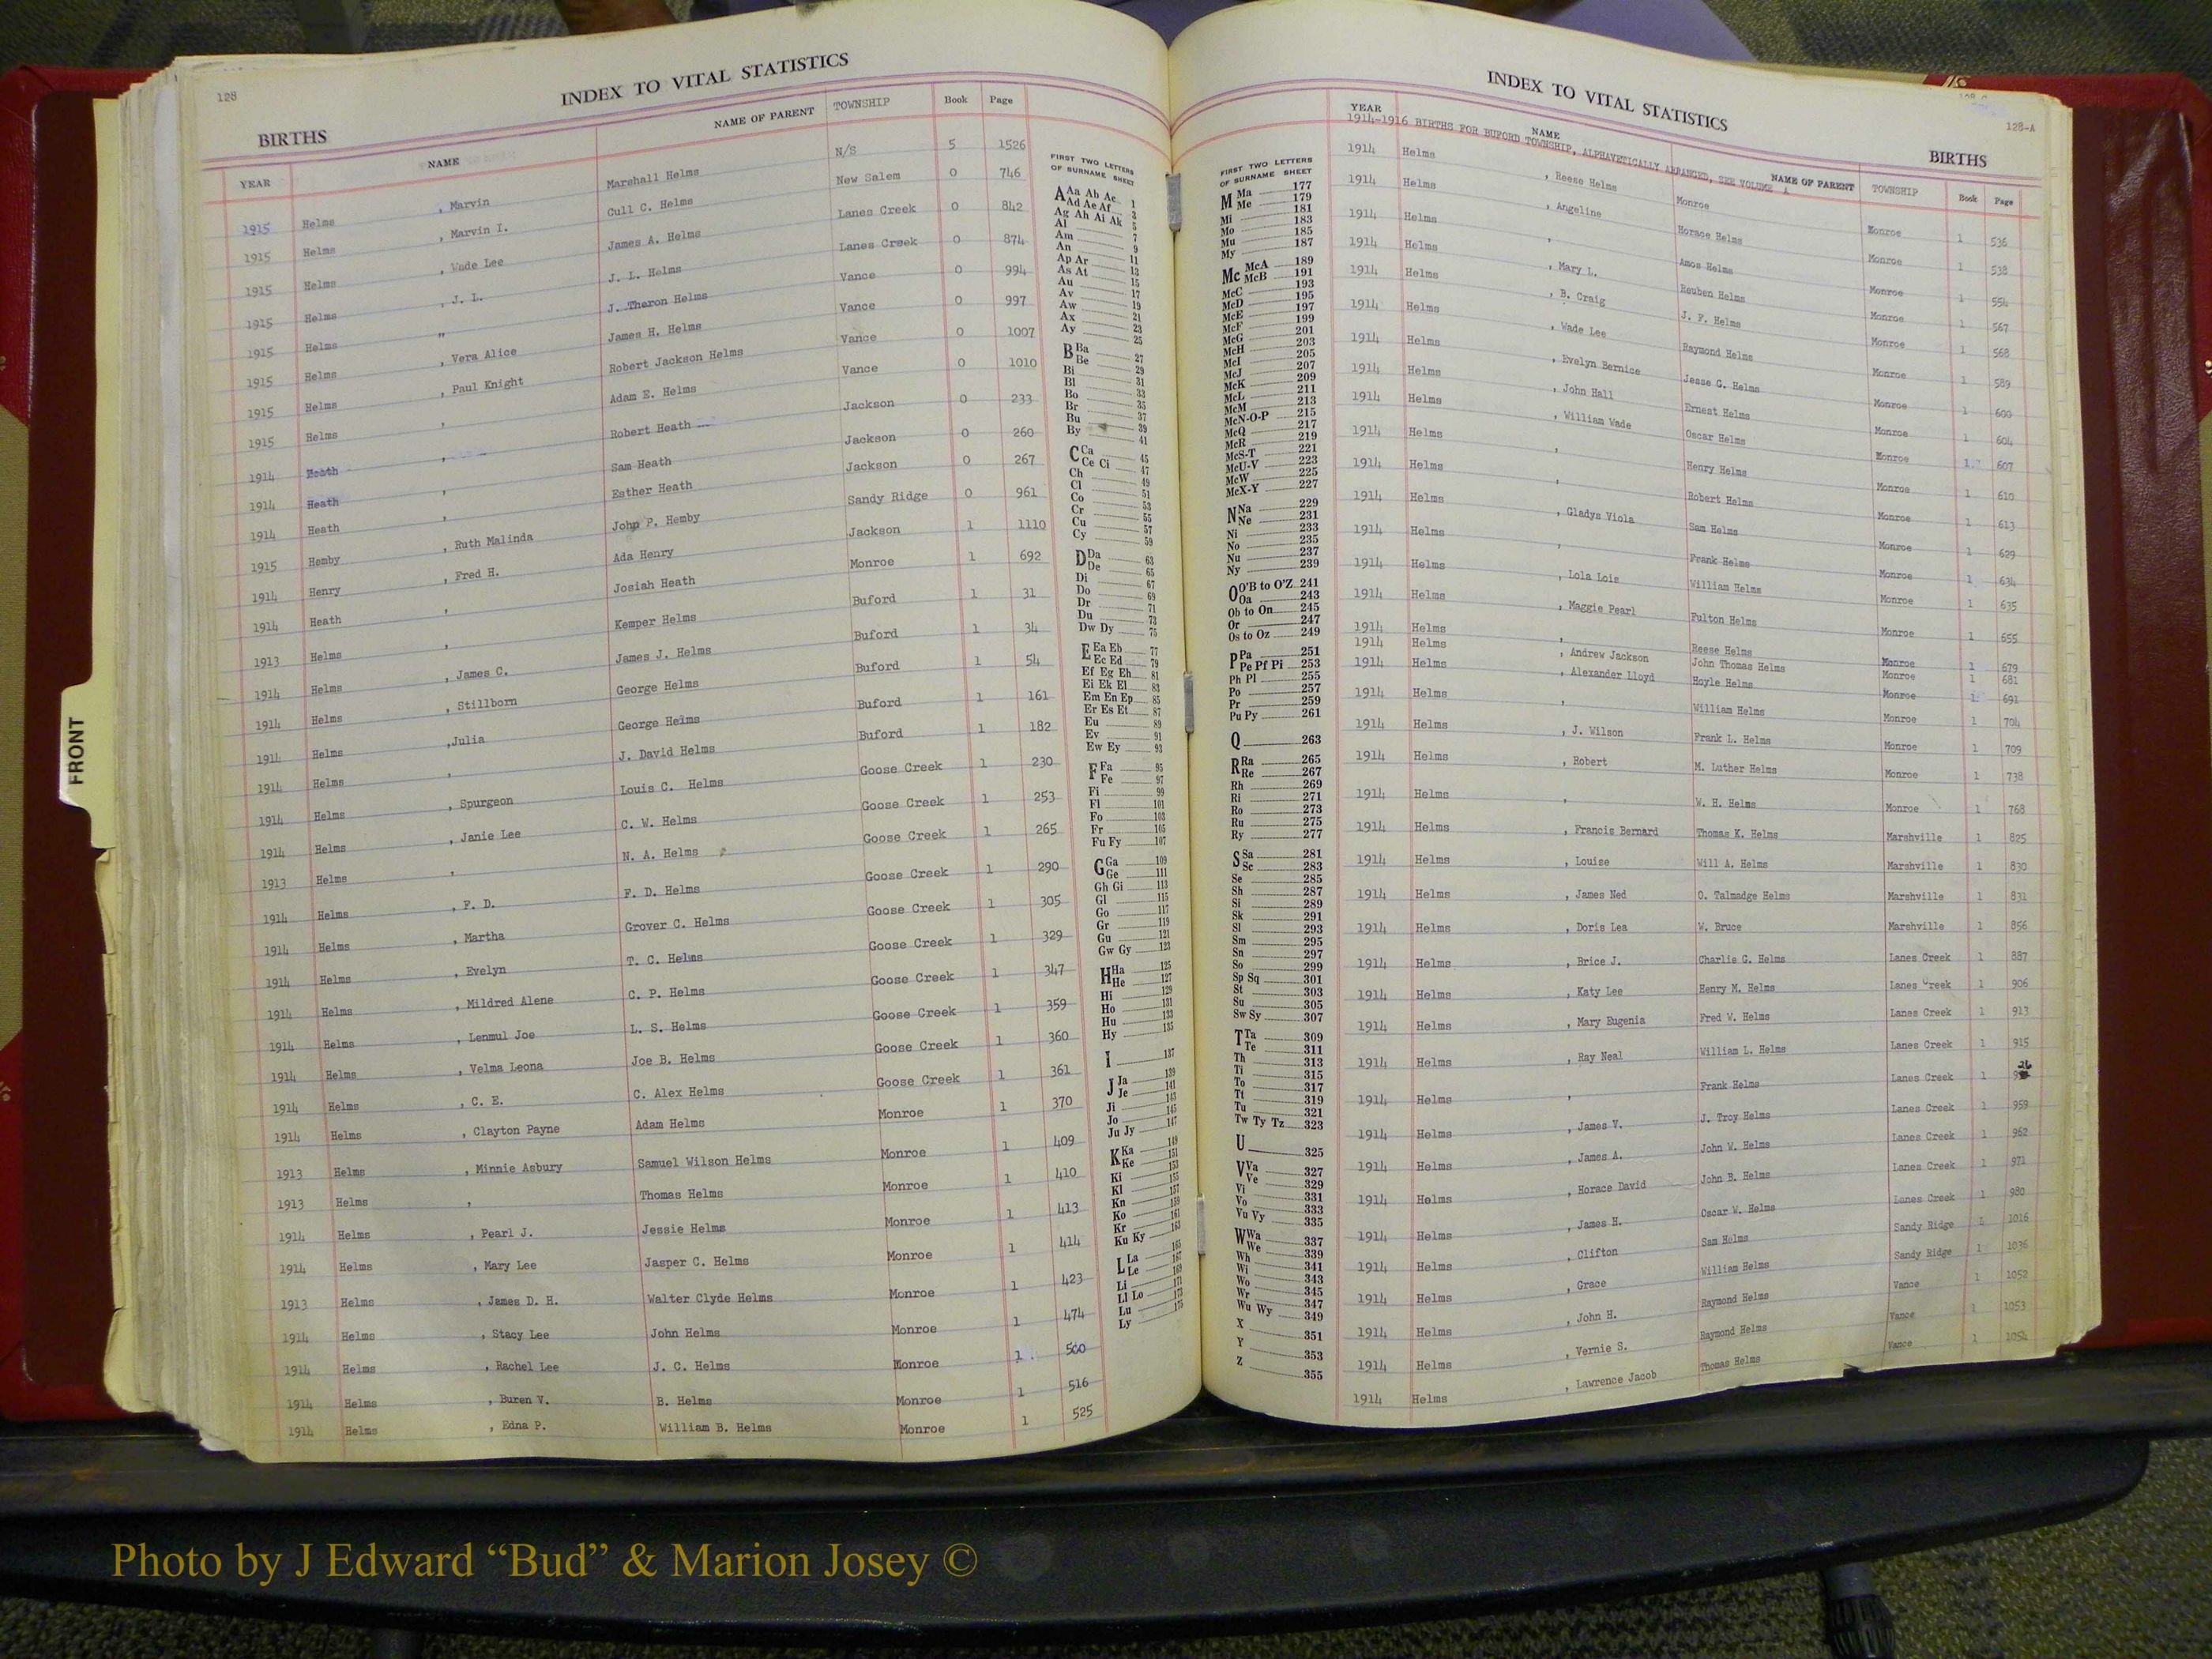 128
INDEX TO VITAL STATISTICS
BIRTHS
YEAR NAME NAME OF PARENT TOWNSHIP Book Page
1915 Helms , Marvin Marshall Helms N/S 5 1526
1915 Helms , Marvin I. Cull C. Helms New Salem 0 746
1915 Helms , Wade Lee James A. Helms Lanes Creek 0 842
1915 Helms , J. L. J. L. Helms Lanes Creek 0 874
1915 Helms " J. Theron Helms Vance 0 994
1915 Helms , Vera Alice James H. Helms Vance 0 997
1915 Helms , Paul Knight Robert Jackson Helms Vance 0 1007
1915 Helms , Adam E. Helms Vance 0 1010
1914 Heath , Robert Heath Jackson 0 233
1914 Heath , Sam Heath Jackson 0 260
1914 Heath , Esther Heath Jackson 0 267
1915 Hemby , Ruth Malinda John P. Hemby Sandy Ridge 0 961
1914 Henry , Fred H. Ada Henry Jackson 1 1110
1914 Heath , Josiah Heath Monroe 1 692
1913 Helms , Kemper Helms Buford 1 31
1914 Helms , James C. James J. Helms Buford 1 34
1914 Helms , Stillborn George Helms Buford 1 54
1914 Helms ,Julia George Helms Buford 1 161
1914 Helms , J. David Helms Buford 1 182
1914 Helms , Spurgeon Louis C. Helms Goose Creek 1 230
1914 Helms , Janie Lee C. W. Helms Goose Creek 1 253
1913 Helms , N. A. Helms Goose Creek 1 265
1914 Helms , F. D. F. D. Helms Goose Creek 1 290
1914 Helms , Martha Grover C. Helms Goose Creek 1 305
1914 Helms , Evelyn T. C. Helms Goose Creek 1 329
1914 Helms , Mildred Alene C. P. Helms Goose Creek 1 347
1914 Helms , Lenmul Joe L. S. Helms Goose Creek 1 359
1914 Helms , Velma Leona Joe B. Helms Goose Creek 1 360
1914 Helms , C. E. C. Alex Helms Goose Creek 1 361
1914 Helms , Clayton Payne Adam Helms Monroe 1 370
1913 Helms , Minnie Asbury Samuel Wilson Helms Monroe 1 409
1913 Helms , Thomas Helms Monroe 1 410
1914 Helms , Pearl J. Jessie Helms Monroe 1 413
1914 Helms , Mary Lee Jasper C. Helms Monroe 1 414
1913 Helms , James D. H. Walter Clyde Helms Monroe 1 423
1914 Helms , Stacy Lee John Helms Monroe 1 474
1914 Helms , Rachel Lee J. C. Helms Monroe 1 500
1914 Helms , Buren V. B. Helms Monroe 1 516
1914 Helms , Edna P. William B. Helms Monroe 1 525
FIRST TWO LETTERS
OF SURNAME SHEET
A Aa Ab Ac 1
Ad Ae Af 3
Ag Ah Ai Ak 5
Al 7
Am 9
An 11
Ap Ar 13
As At 15
Au 17
Av 19
Aw 21
Ax 23
Ay 25
B Ba 27
Be 29
Bi 31
Bl 33
Bo 35
Br 37
Bu 39
By 41
C Ca 45
Ce Ci 47
Ch 49
Cl 51
Co 53
Cr 55
Cu 57
Cy 59
D Da 63
De 65
Di 67
Do 69
Dr 71
Du 73
Dw Dy 75
E Ea Eb 77
Ec Ed 79
Ef Eg Eh 81
Ei Ek El 83
Em En Ep 85
Er Es Et 87
Eu 89
Ev 91
Ew Ey 93
F Fa 95
Fe 97
Fi 99
Fl 101
Fo 103
Fr 105
Fu Fy 107
G Ga 109
Ge 111
Gh Gi 113
Gl 115
Go 117
Gr 119
Gu 121
Gw Gy 123
H Ha 125
He 127
Hi 129
Ho 131
Hu 133
Hy 135
I 137
J Ja 139
Je 141
Ji 143
Jo 145
Ju Jy 147
K Ka 149
Ke 151
Ki 153
Kl 155
Kn 157
Ko 159
Kr 161
Ku Ky 163
L La 165
Le 167
Li 169
Ll Lo 171
Lu 173
Ly 175
FRONT
INDEX TO VITAL STATISTICS
128-A
BIRTHS
FIRST TWO LETTERS
OF SURNAME SHEET
M Ma 177
Me 179
Mi 181
Mo 183
Mu 185
My 187
Mc McA 189
McB 191
McC 193
McD 195
McE 197
McF 199
McG 201
McH 203
McI 205
McJ 207
McK 209
McL 211
McM 213
McN-O-P 215
McQ 217
McR 219
McS-T 221
McU-V 223
McW 225
McX-Y 227
N Na 229
Ne 231
Ni 233
No 235
Nu 237
Ny 239
O O'B to O'Z 241
Oa 243
Ob to On 245
Or 247
Os to Oz 249
P Pa 251
Pe Pf Pi 253
Ph Pl 255
Po 257
Pr 259
Pu Py 261
Q 263
R Ra 265
Re 267
Rh 269
Ri 271
Ro 273
Ru 275
Ry 277
S Sa 281
Sc 283
Se 285
Sh 287
Si 289
Sk 291
Sl 293
Sm 295
Sn 297
So 299
Sp Sq 301
St 303
Su 305
Sw Sy 307
T Ta 309
Te 311
Th 313
Ti 315
To 317
Tt 319
Tu 321
Tw Ty Tz 323
U 325
V Va 327
Ve 329
Vi 331
Vo 333
Vu Vy 335
W Wa 337
We 339
Wh 341
Wi 343
Wo 345
Wr 347
Wu Wy 349
X 351
Y 353
Z 355
YEAR NAME NAME OF PARENT TOWNSHIP Book Page
1914-1916 BIRTHS FOR BUFORD TOWNSHIP, ALPHAVETICALLY ARRANGED, SEE VOLUME A
1914 Helms , Reese Helms Monroe Monroe 1 536
1914 Helms , Angeline Horace Helms Monroe 1 538
1914 Helms , Amos Helms Monroe 1 554
1914 Helms , Mary L. Reuben Helms Monroe 1 567
1914 Helms , B. Craig J. F. Helms Monroe 1 568
1914 Helms , Wade Lee Raymond Helms Monroe 1 589
1914 Helms , Evelyn Bernice Jesse C. Helms Monroe 1 600
1914 Helms , John Hall Ernest Helms Monroe 1 604
1914 Helms , William Wade Oscar Helms Monroe 1 607
1914 Helms , Henry Helms Monroe 1 610
1914 Helms , Robert Helms Monroe 1 613
1914 Helms , Gladys Viola Sam Helms Monroe 1 629
1914 Helms , Frank Helms Monroe 1 634
1914 Helms , Lola Lois William Helms Monroe 1 635
1914 Helms , Maggie Pearl Fulton Helms Monroe 1 655
1914 Helms , Reese Helms Monroe 1 679
1914 Helms , Andrew Jackson John Thomas Helms Monroe 1 681
1914 Helms , Alexander Lloyd Hoyle Helms Monroe 1 691
1914 Helms , William Helms Monroe 1 704
1914 Helms , J. Wilson Frank L. Helms Monroe 1 709
1914 Helms , Robert M. Luther Helms Monroe 1 738
1914 Helms , W. H. Helms Monroe 1 768
1914 Helms , Francis Bernard Thomas K. Helms Marshville 1 825
1914 Helms , Louise Will A. Helms Marshville 1 830
1914 Helms , James Ned O. Talmadge Helms Marshville 1 831
1914 Helms , Doris Lea W. Bruce Marshville 1 856
1914 Helms , Brice J. Charlie G. Helms Lanes Creek 1 887
1914 Helms , Katy Lee Henry M. Helms Lanes Creek 1 906
1914 Helms , Mary Eugenia Fred W. Helms Lanes Creek 1 913
1914 Helms , Ray Neal William L. Helms Lanes Creek 1 915
1914 Helms , Frank Helms Lanes Creek 1
1914 Helms , James V. J. Troy Helms Lanes Creek 1 959
1914 Helms , James A. John W. Helms Lanes Creek 1 962
1914 Helms , Horace David John B. Helms Lanes Creek 1 971
1914 Helms , James H. Oscar W. Helms Lanes Creek 1 980
1914 Helms , Clifton Sam Helms Sandy Ridge 1 1016
1914 Helms , Grace William Helms Sandy Ridge 1 1036
1914 Helms , John H. Raymond Helms Vance 1 1052
1914 Helms , Vernie S. Raymond Helms Vance 1 1053
1914 Helms , Lawrence Jacob Thomas Helms Vance 1 1054
Photo by J Edward “Bud” & Marion Josey ©